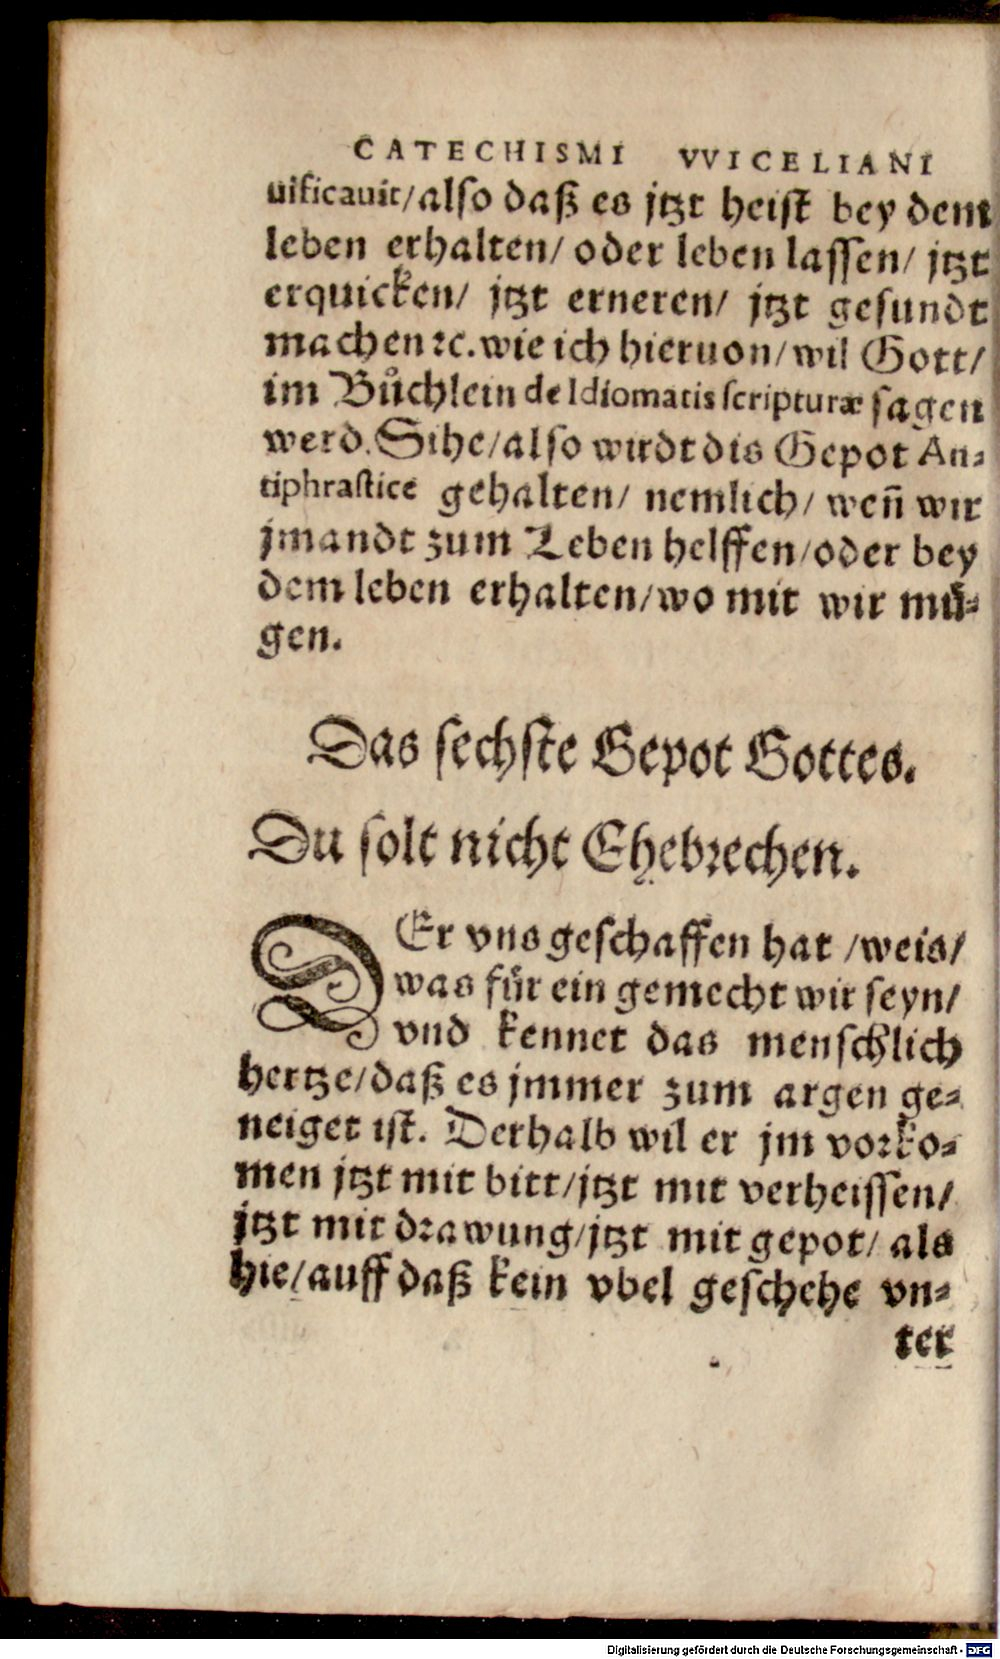 CATECHISMI VVICELIANI
uificauit/also daß es jtzt heist bey dem
leben erhalten/ oder leben lassen/ jtzt
erquicken/ jtzt erneren/ jtzt gesundt
machen ꝛc. wie ich hieruon/wil Gott/
im Bůchlein de Idiomatis scripturæ sagen
werd. Sihe/also wirdt dis Gepot An-
tiphrastice gehalten/ nemlich/ weñ wir
jmandt zum Leben helffen/oder bey
dem leben erhalten/wo mit wir mü-
gen.
Das sechste Gepot Gottes.
Du solt nicht Ehebrechen.
DEr vns geschaffen hat /weis/
was für ein gemecht wir seyn/
vnd kennet das menschlich
hertze/daß es jmmer zum argen ge-
neiget ist. Derhalb wil er jm vorko-
men jtzt mit bitt/jtzt mit verheissen/
jtzt mit drawung/jtzt mit gepot/ als
hie/auff daß kein vbel geschehe vn-
ter
Digitalisierung gefördert durch die Deutsche Forschungsgemeinschaft - DFG